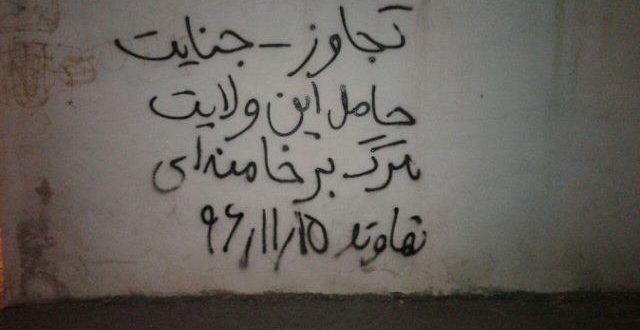 تجاوز - جنایت
حامل این ولایت
مرگ بر خامنه‌ای
نهاوند ۹۶/۱۱/۱۵